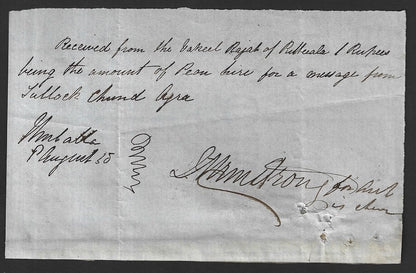 Received from the Vakeel Rajah of Putteeala 1 Rupees
being the amount of Peon hire for a message from
Tullock Chund Agra
Umballa
August 55
JHArmstrong for Asst
in char